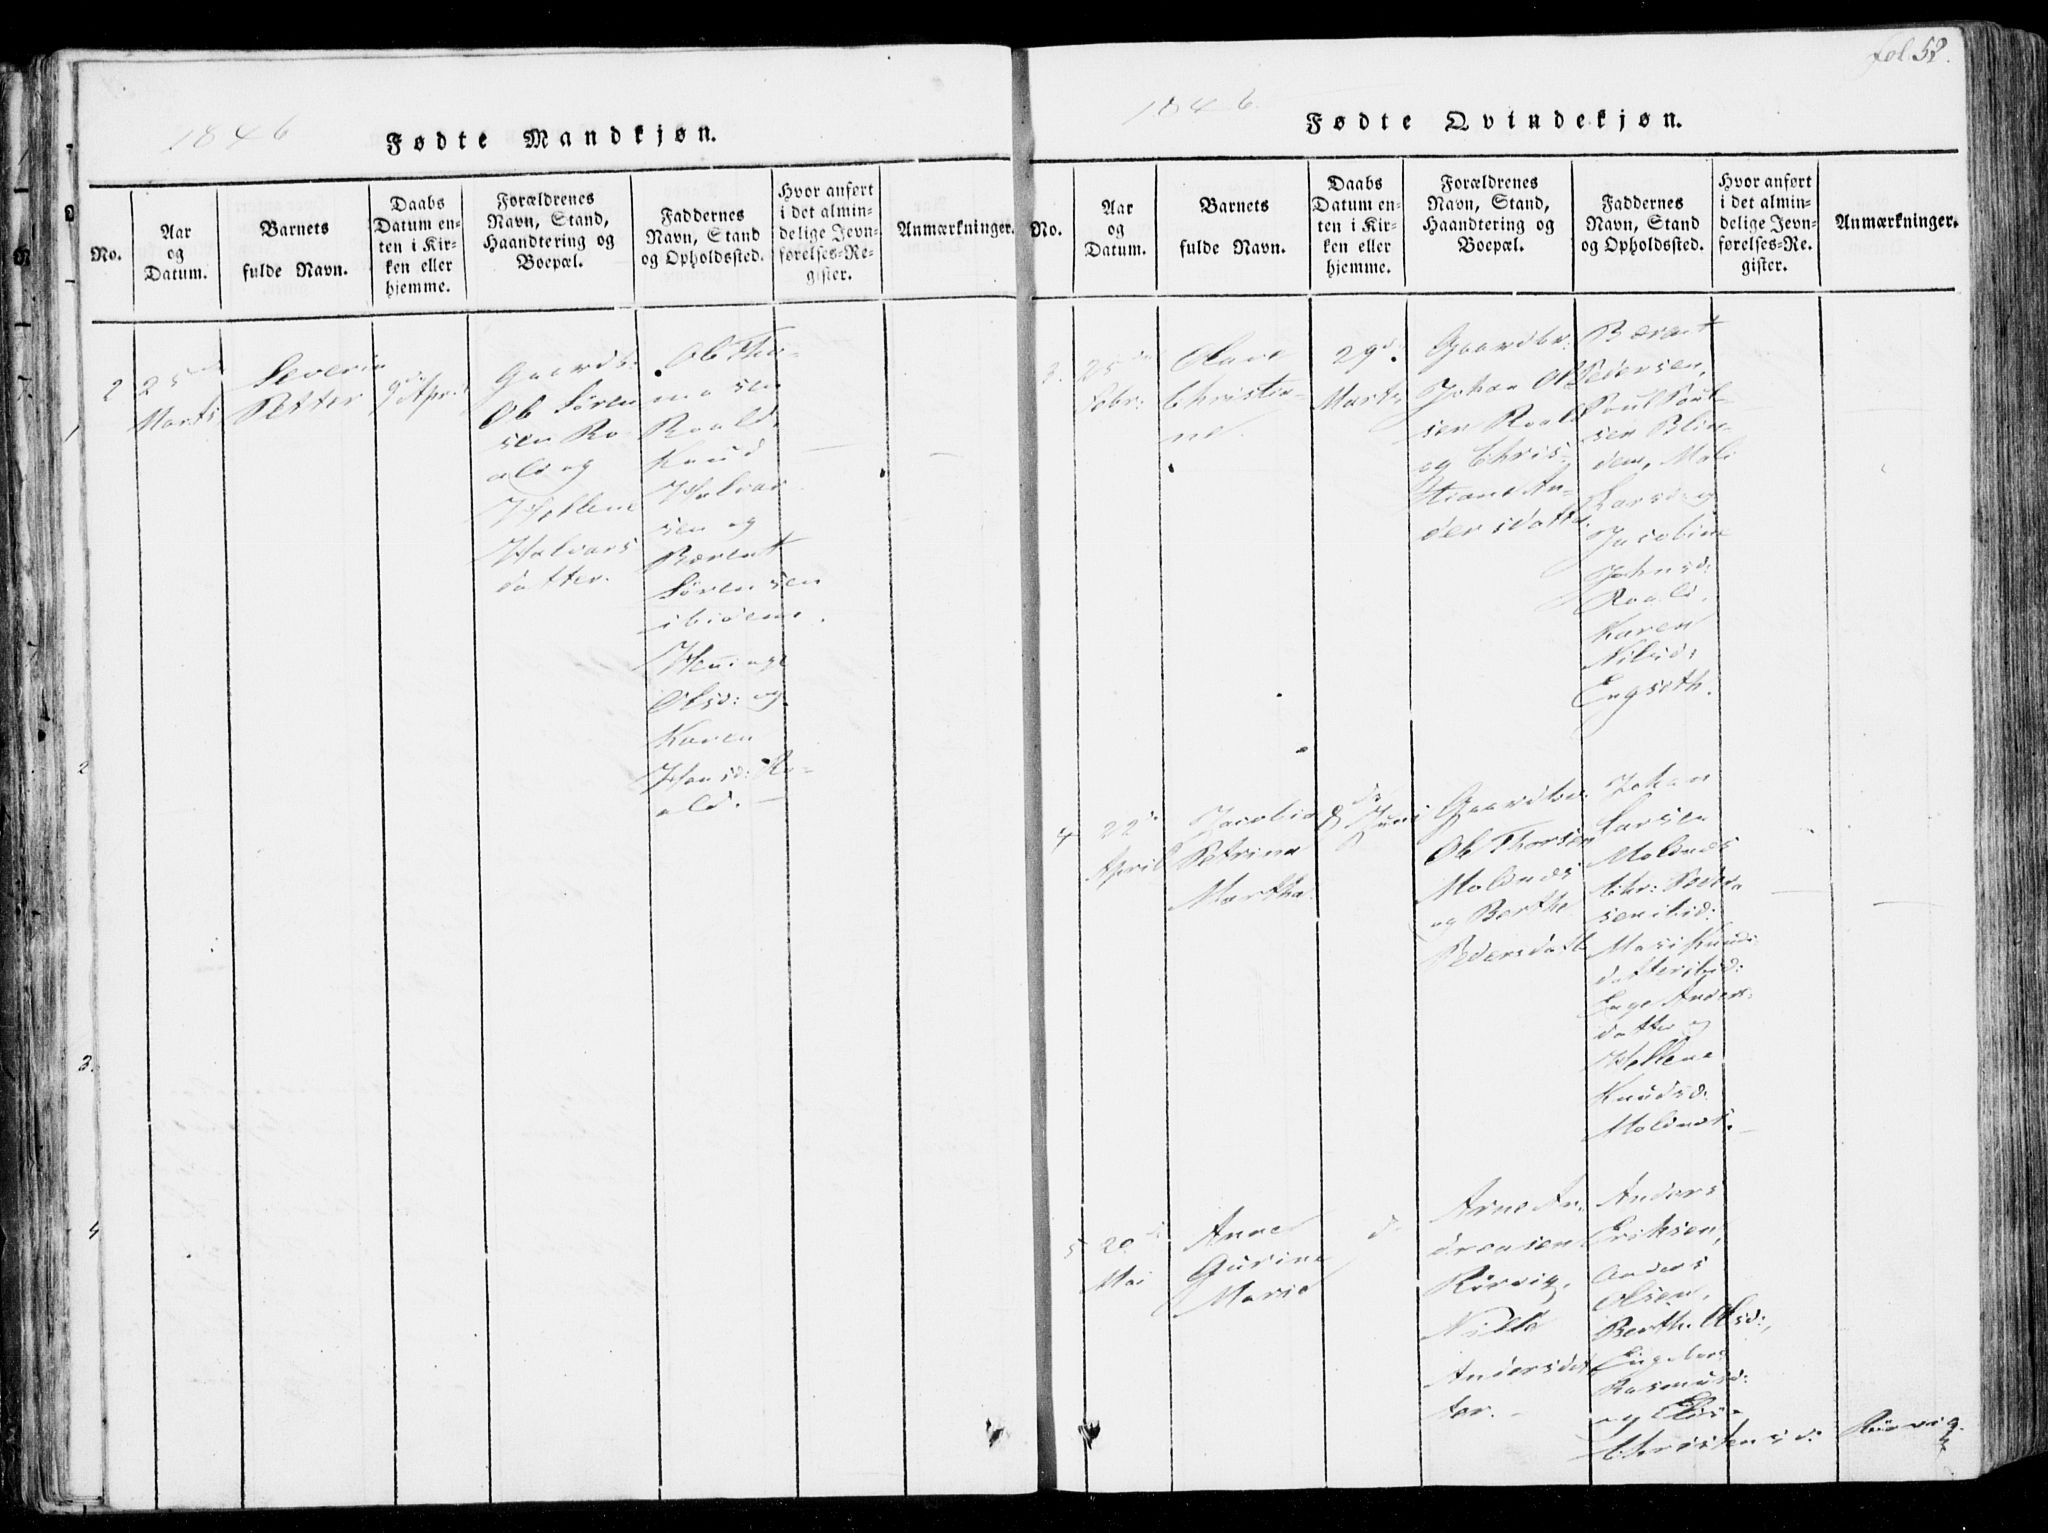 fol. 52.
1846
Fødte Mandkjøn.
No.
Aar
og
Datum.
Barnets
fulde Navn.
Daabs
Datum en-
ten i Kir-
ken eller
hjemme.
Forældrenes
Navn, Stand,
Haandtering og
Boepæl.
Faddernes
Navn, Stand
og Opholdssted.
Hvor anført
i det almin-
delige Jevn-
førelses-Re-
gister.
Anmærkninger.
2
25de
Marts
Severin
Petter
9de April
Gaardb:
Ole Søren
sen Ro-
ald og
Hellene
Halvars
datter.
Ole Tho-
masen
Roald,
Knud
Halvar
sen og
Bærent
Sørensen
ibidem.
Olsd: og
Karen
Hansd: Ro-
ald. —
1846.
Fødte Qvindekjøn.
No.
Aar
og
Datum.
Barnets
fulde Navn.
Daabs
Datum en-
ten i Kir-
ken eller
hjemme.
Forældrenes
Navn, Stand,
Haandtering og
Boepæl.
Faddernes
Navn, Stand
og Opholdssted.
Hvor anført
i det almin-
delige Jevn-
førelses-Re-
gister.
Anmærkninger.
3.
25de
Febr:
Olave
Christia-
ne.
29de
Marts
Gaardbr:
Johan Ol-
sen Roald
og Chris-
tiane An-
dersdatter
Bærent
Pedersen,
Poul Poul-
sen Blin-
dem, Mali
Larsd: og
Jacobine
Johnsd:
Roald,
Karen
Nilsd:
Engseth.
4
22de
April
Jacobia
Petrine
Martha.
8de Juni
Gaardbr:
Ole Thorsen
Moldnæs
og Berthe
Pedersdatt
Johan
Larsen
Moldnæs
Chr: Peder
sen ibid:
Mari Knuds
datter ibid:
Inge Anders
datter og
Hellene
Knudsd:
Moldnæs. —
5
20de
Mai
Anne
Gurine
Marie
d.
Arne An-
dreasen
Rørvig,
Nille
Andersdat
ter. —
Anders
Eriksen,
Anders
Olsen,
Berthe Olsd:,
Ingebor
Rasmusd:
og Elise
Christensd: Rørvig.